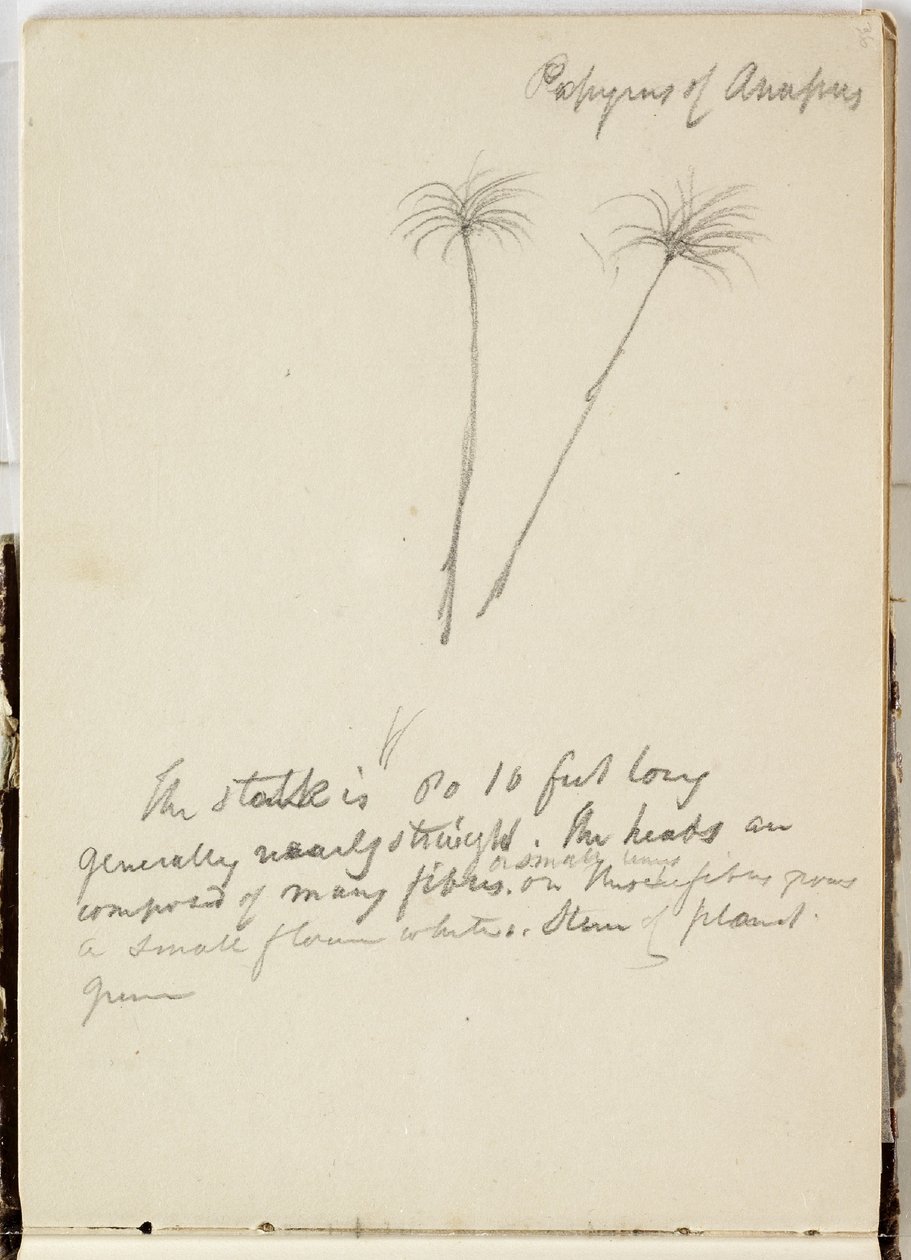 36
Papyrus of Anapus
The stalk is 8 to 10 feet long
generally nearly straight. The heads are
or small leaves
composed of many fibres. on these fibres grows
a small flower white. Stem of plant
green